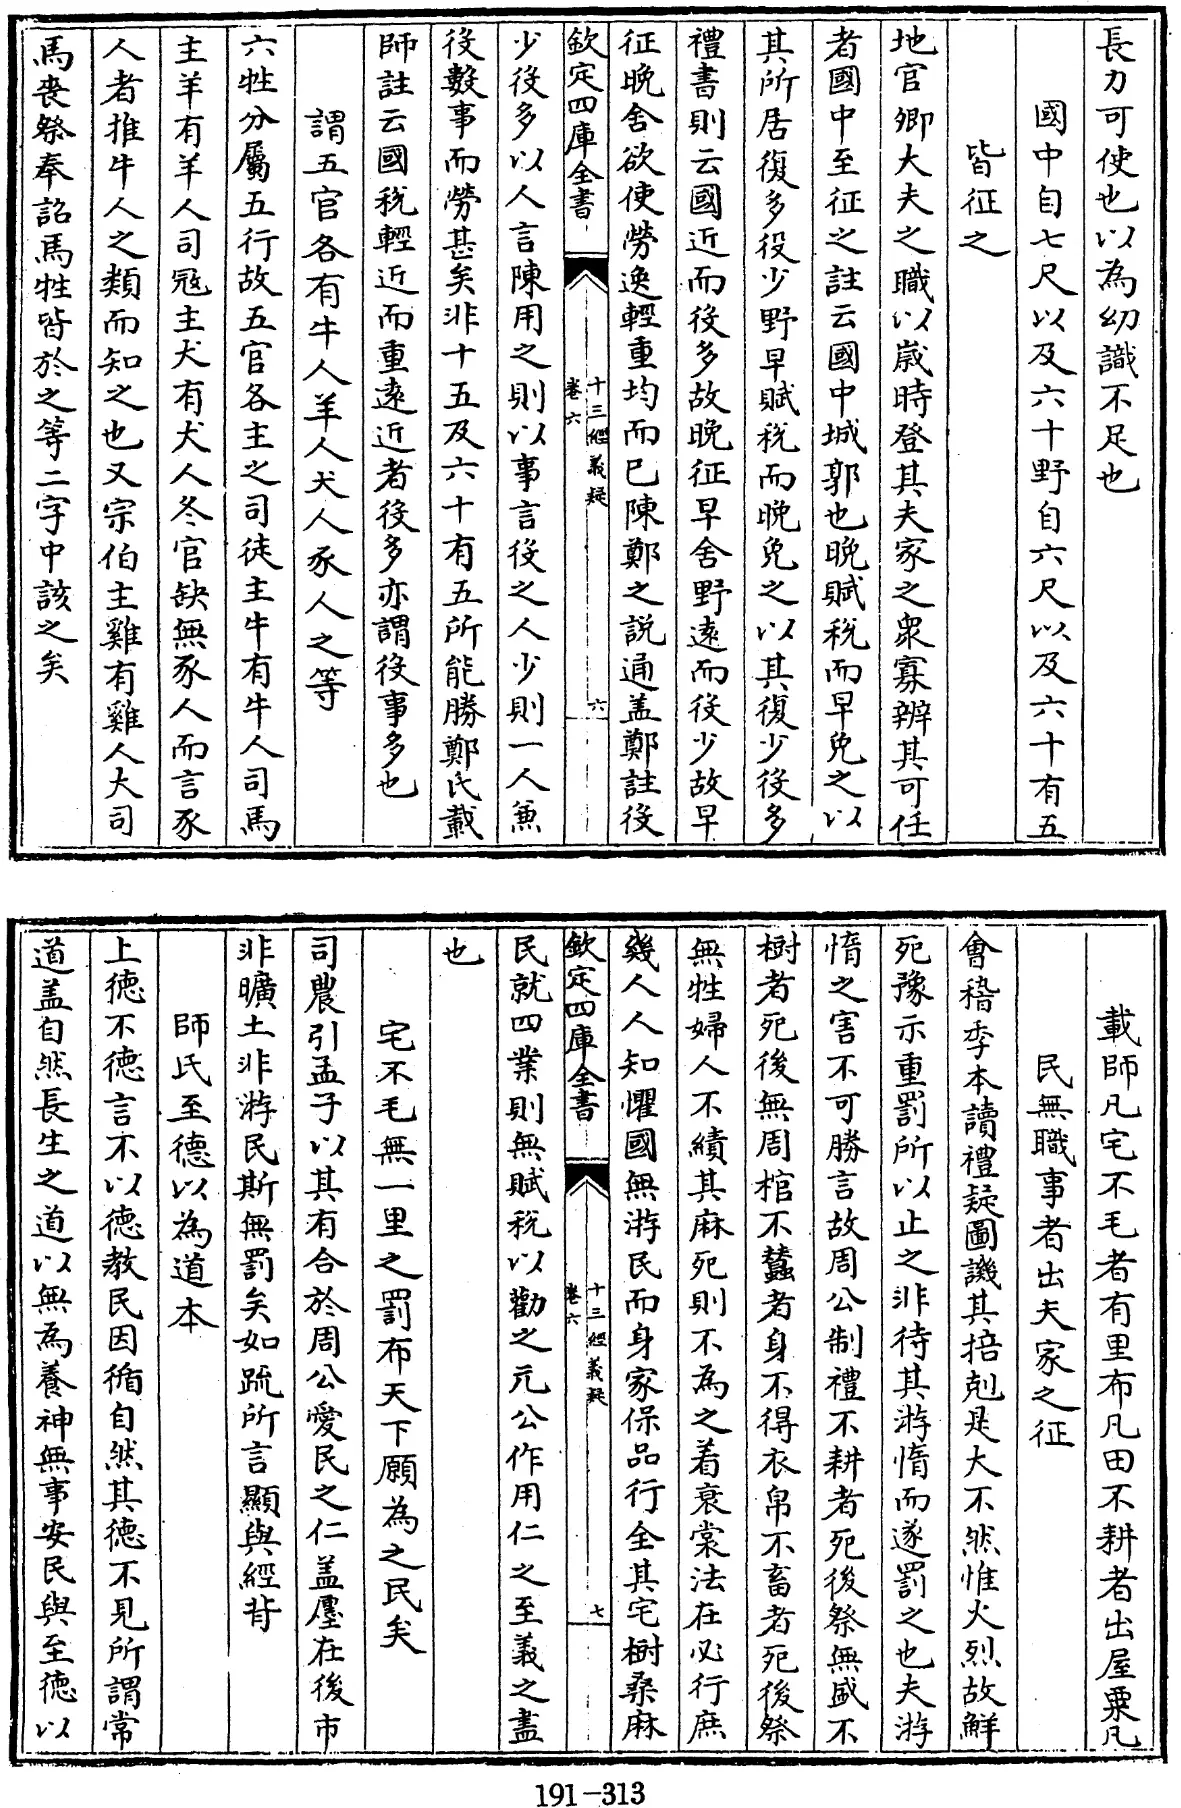 長力可使也以為幼識不足也
國中自七尺以及六十野自六尺以及六十有五
皆征之
地官鄉大夫之職以嵗時登其夫家之衆寡辨其可任
者國中至征之註云國中城郭也晚賦稅而早免之以
其所居復多役少野早賦稅而晚免之以其復少役多
禮書則云國近而役多故晚征早舍野遠而役少故早
征晚舍欲使勞逸輕重均而已陳鄭之説通盖鄭註役
欽定四庫全書
十三經義疑
卷六
六
少役多以人言陳用之則以事言役之人少則一人兼
役數事而勞甚矣非十五及六十有五所能勝鄭氏載
師註云國稅輕近而重遠近者役多亦謂役事多也
謂五官各有牛人羊人犬人豕人之等
六牲分屬五行故五官各主之司徒主牛有牛人司馬
主羊有羊人司冦主犬有犬人冬官缺無豕人而言豕
人者推牛人之類而知之也又宗伯主雞有雞人大司
馬喪祭奉詔馬牲皆於之等二字中該之矣
載師凡宅不毛者有里布凡田不耕者出屋粟凡
民無職事者出夫家之征
會稽季本讀禮疑圖譏其掊剋是大不然惟火烈故鮮
死豫示重罰所以止之非待其游惰而遂罰之也夫游
惰之害不可勝言故周公制禮不耕者死後祭無盛不
樹者死後無周棺不蠶者身不得衣帛不畜者死後祭
無牲婦人不績其麻死則不為之着衰裳法在必行庶
幾人人知懼國無游民而身家保品行全其宅樹桑麻
欽定四庫全書
十三經義疑
卷六
七
民就四業則無賦稅以勸之元公作用仁之至義之盡
也
宅不毛無一里之罰布天下願為之民矣
司農引孟子以其有合於周公愛民之仁盖廛在後市
非曠土非游民斯無罰矣如疏所言顯與經背
師氏至德以為道本
上德不德言不以德教民因循自然其德不見所謂常
道盖自然長生之道以無為養神無事安民與至德以
191-313